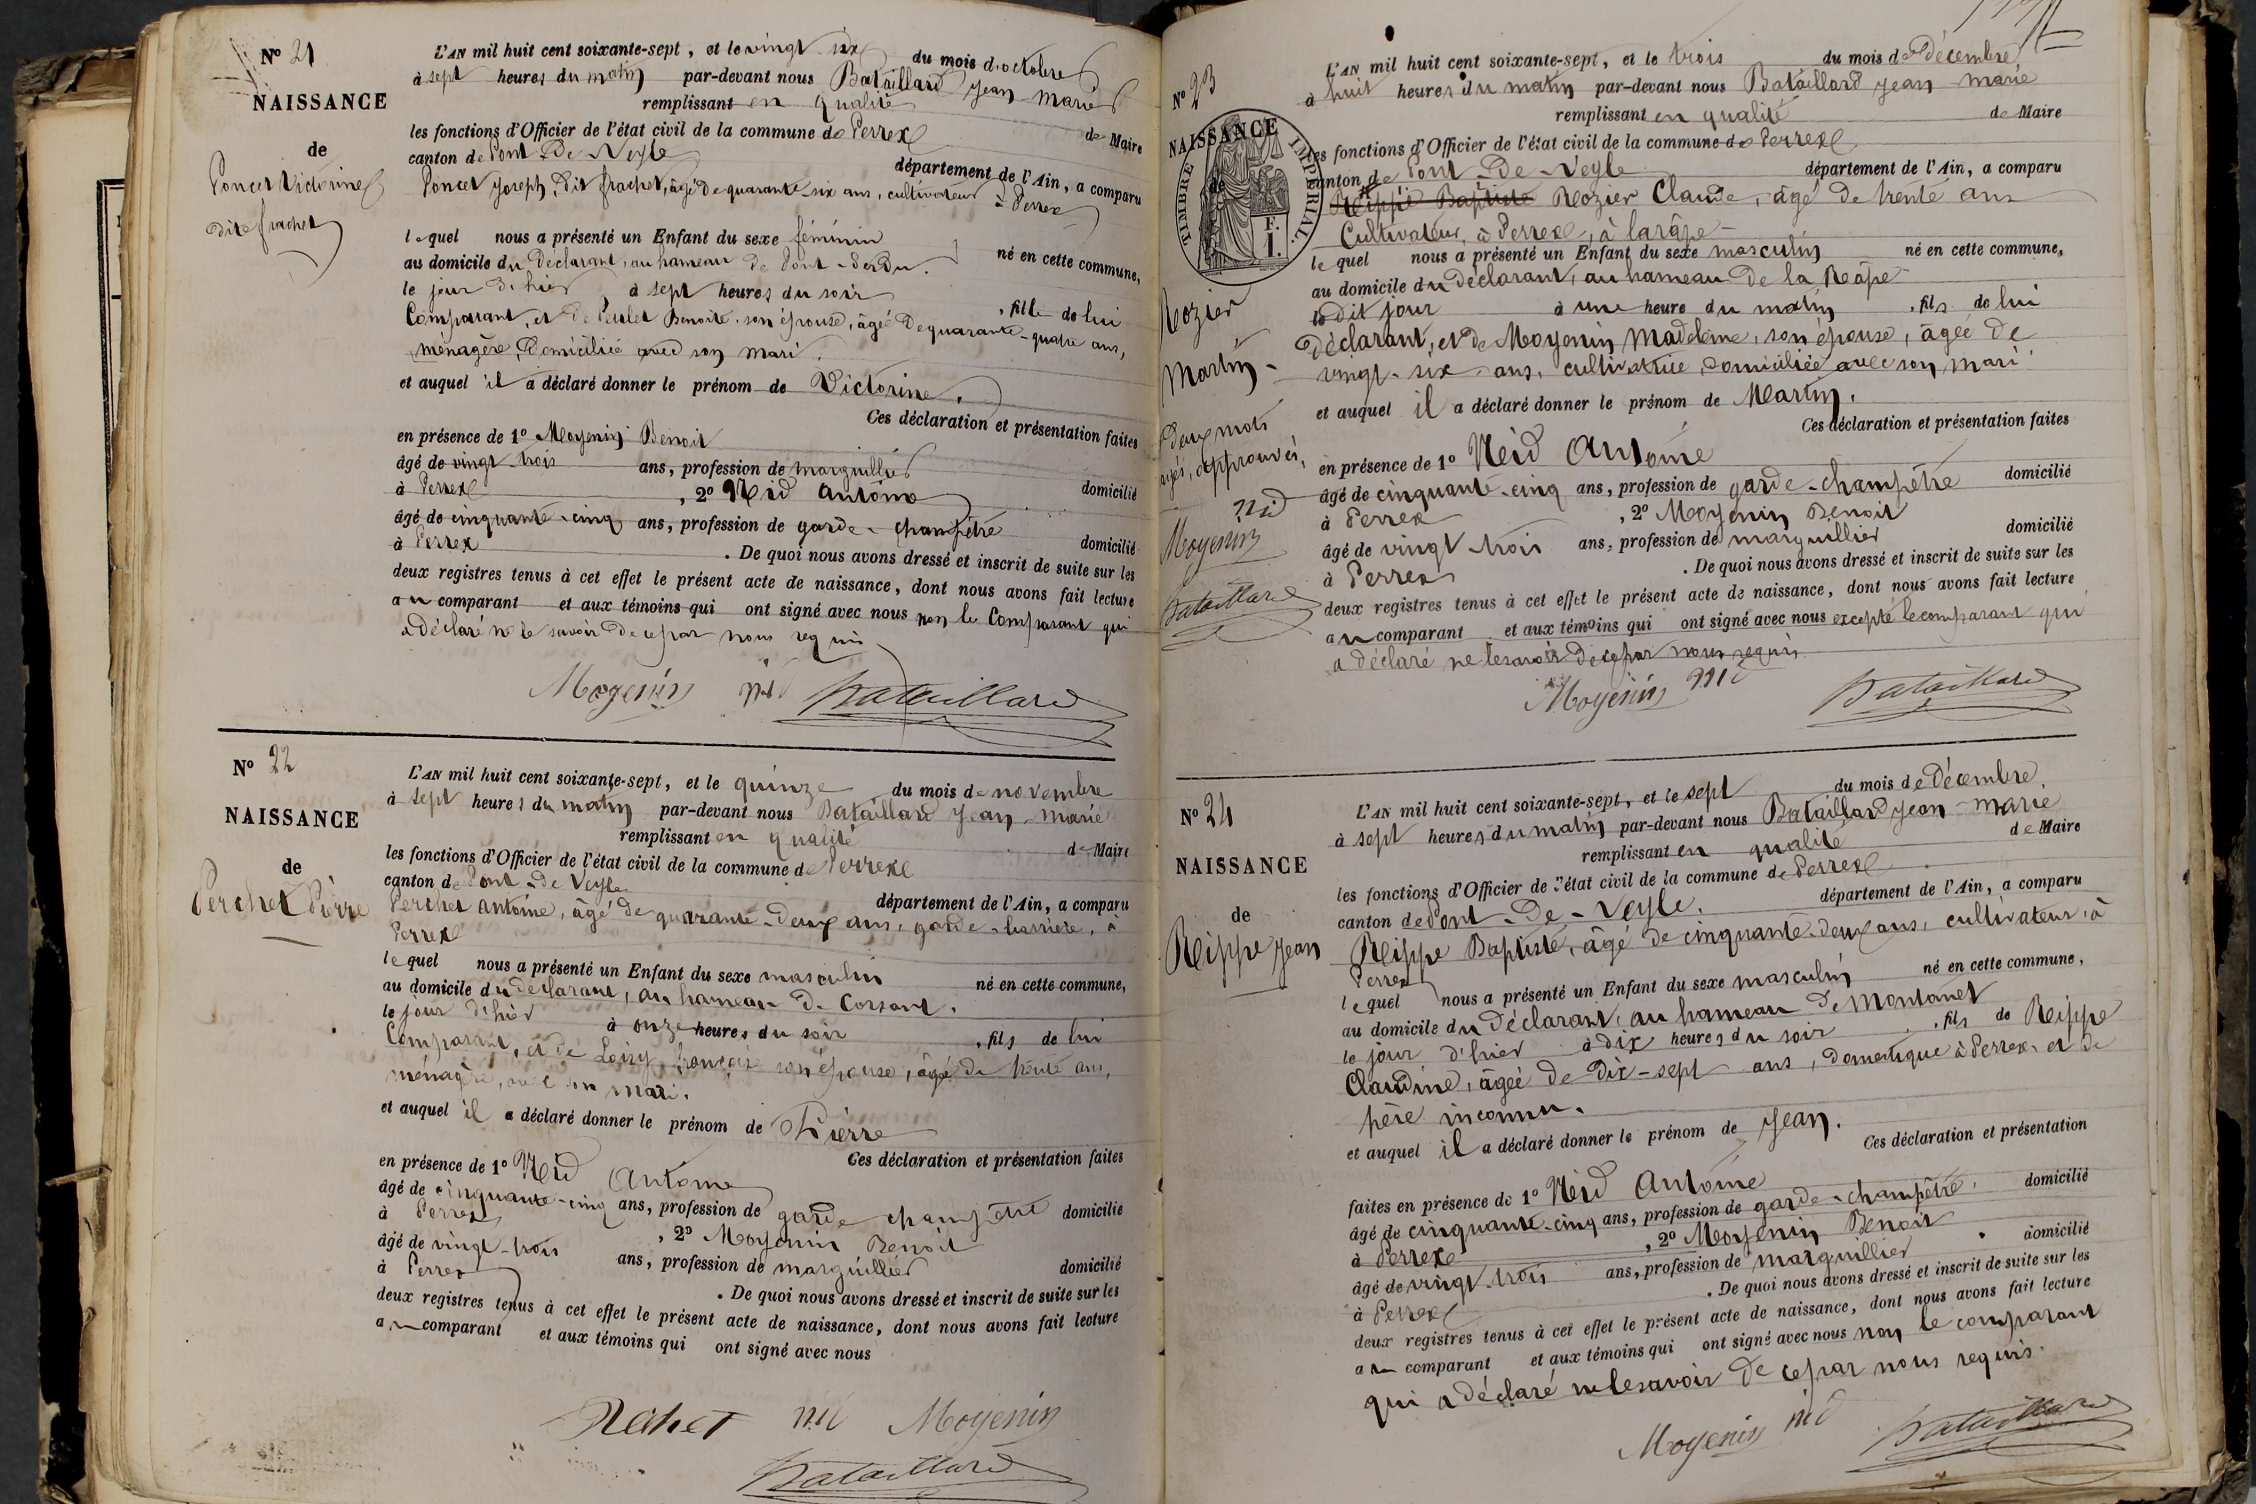 N° 21
NAISSANCE
de
Poncet Victorine
dite frachet
L'AN mil huit cent soixante-sept, et le vingt six du mois d'octobre
à sept heures du matin par-devant nous Bataillard Jean Marie
remplissant en qualité de Maire
les fonctions d'Officier de l'état civil de la commune de Perrex
canton de Pont-De-Veyle département de l'Ain, a comparu
Poncet Joseph, Dit frachet, âgé de quarante six ans, cultivateur à Perrex
lequel nous a présenté un Enfant du sexe féminin né en cette commune,
au domicile du Déclarant, au hameau de Pont-Perdu.
le jour d'hier à sept heures du soir, fille de lui
Comparant, et de Benoite, son épouse, âgée De quarante-quatre ans,
ménagère, Domiciliée avec son mari.
et auquel il a déclaré donner le prénom de Victorine.
Ces déclaration et présentation faites
en présence de 1° Moyenin Benoit
âgé de vingt-trois ans, profession de marguillier domicilié
à Perrex, 2° Nid Antoine
âgé de cinquante-cinq ans, profession de garde-champêtre domicilié
à Perrex. De quoi nous avons dressé et inscrit de suite sur les
deux registres tenus à cet effet le présent acte de naissance, dont nous avons fait lecture
au comparant et aux témoins qui ont signé avec nous non le Comparant qui
a déclaré ne le savoir De ce par nous requis
Moyenin Nid Bataillard
N° 22
NAISSANCE
de
Perchet Pierre
L'AN mil huit cent soixante-sept, et le quinze du mois de novembre
à sept heures du matin par-devant nous Bataillard Jean-Marie
remplissant en qualité de Maire
les fonctions d'Officier de l'état civil de la commune de Perrex
canton de Pont-de Veyle département de l'Ain, a comparu
Perchet Antoine, âgé de quarante-deux ans, garde-barrière, à
Perrex
lequel nous a présenté un Enfant du sexe masculin né en cette commune,
au domicile du déclarant, au hameau de Corsant.
le jour d'hier à onze heures du soir, fils de lui
Comparant, et de Loisy françoise son épouse, âgée de trente ans,
ménagère, avec son mari.
et auquel il a déclaré donner le prénom de Pierre
Ces déclaration et présentation faites
en présence de 1° Nid Antoine
âgé de cinquante-cinq ans, profession de garde champêtre domicilié
à Perrex, 2° Moyenin Benoit
âgé de vingt-trois ans, profession de marguillier domicilié
à Perrex. De quoi nous avons dressé et inscrit de suite sur les
deux registres tenus à cet effet le présent acte de naissance, dont nous avons fait lecture
au comparant et aux témoins qui ont signé avec nous
Nid Moyenin
Bataillard
N° 23
NAISSANCE
de
TIMBRE IMPERIAL.
F.
1.
Rozier
Martin
Deux mots
approuvés,
Nid
Moyenin
Bataillard
L'AN mil huit cent soixante-sept, et le trois du mois de Décembre
à huit heures du matin par-devant nous Bataillard Jean-Marie
remplissant en qualité de Maire
les fonctions d'Officier de l'état civil de la commune de Perrex
canton de Pont-De-Veyle département de l'Ain, a comparu
Reippe Baptiste Rozier Claude, âgé De trente ans
Cultivateur, à Perrex, à larâpe
lequel nous a présenté un Enfant du sexe masculin né en cette commune,
au domicile du Déclarant, au hameau De la Reâpe
le dit jour à une heure du matin, fils de lui
Déclarant, et de Moyenin Madeleine, son épouse, âgée de
vingt-six ans, cultivatrice, Domiciliée avec son mari
et auquel il a déclaré donner le prénom de Martin.
Ces déclaration et présentation faites
en présence de 1° Neid Antoine
âgé de cinquante-cinq ans, profession de garde-champêtre domicilié
à Perrex, 2° Moyenin Benoit
âgé de vingt-trois ans, profession de marguillier domicilié
à Perrex. De quoi nous avons dressé et inscrit de suite sur les
deux registres tenus à cet effet le présent acte de naissance, dont nous avons fait lecture
au comparant et aux témoins qui ont signé avec nous excepté le comparant qui
a déclaré ne le savoir De ce par nous requis
Moyenin Nid Bataillard
N° 24
NAISSANCE
de
Reippe Jean
L'AN mil huit cent soixante-sept, et le sept du mois de Décembre
à sept heures du matin par-devant nous Bataillard Jean-Marie
remplissant en qualité de Maire
les fonctions d'Officier de l'état civil de la commune de Perrex
canton de Pont-De-Veyle. département de l'Ain, a comparu
Reippe Baptiste, âgé de cinquante-deux ans, cultivateur à
Perrex
lequel nous a présenté un Enfant du sexe masculin né en cette commune,
au domicile du Déclarant, au hameau De Montanet
le jour d'hier à dix heures du soir, fils de Reippe
Claudine, âgée De Dix-sept ans, Domestique à Perrex et de
père inconnu.
et auquel il a déclaré donner le prénom de Jean.
Ces déclaration et présentation
faites en présence de 1° Neid Antoine
âgé de cinquante-cinq ans, profession de garde-champêtre, domicilié
à Perrex, 2° Moyenin Benoit
âgé de vingt-trois ans, profession de marguillier domicilié
à Perrex. De quoi nous avons dressé et inscrit de suite sur les
deux registres tenus à cet effet le présent acte de naissance, dont nous avons fait lecture
au comparant et aux témoins qui ont signé avec nous non le comparant
qui a déclaré ne le savoir De ce par nous requis.
Moyenin Nid Bataillard